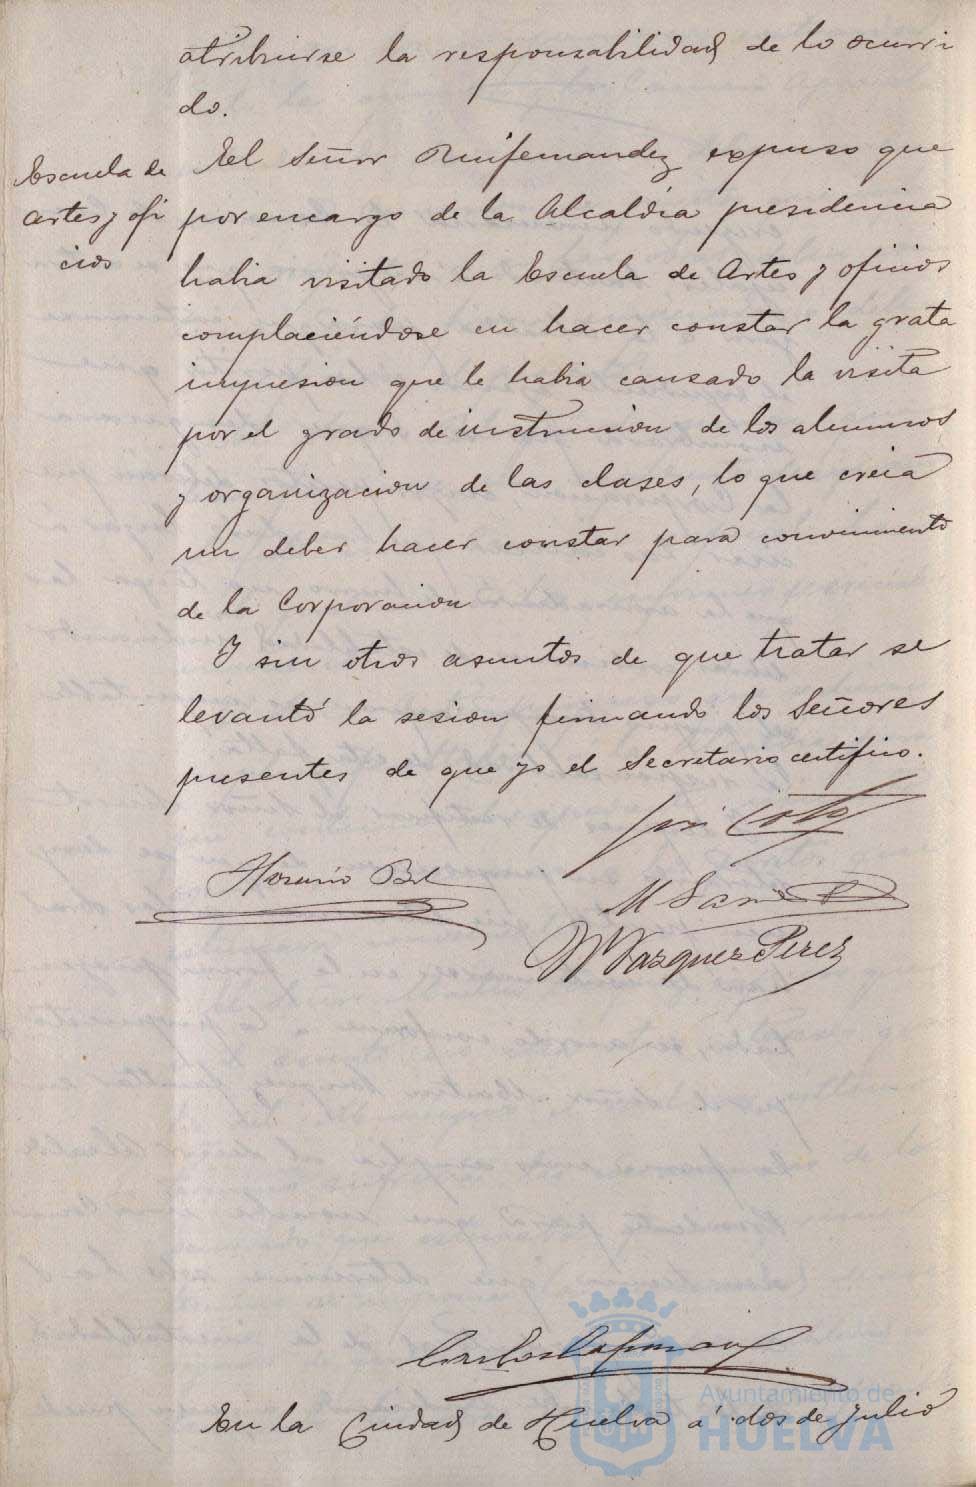 atribuirse la responsabilidad de lo ocurri
do.
Escuela de
Artes y ofi
cios
El Señor Ruifernandez expuso que
por encargo de la Alcaldia presidencia
habia visitado la Escuela de Artes y oficios
complaciéndose en hacer constar la grata
impresion que le habia causado la visita
por el grado de instruccion de los alumnos
y organizacion de las clases, lo que creia
un deber hacer constar para conocimiento
de la Corporacion
Y sin otros asuntos de que tratar se
levantó la sesion firmando los Señores
presentes de que yo el Secretario certifico.
José Coto
Horacio Bel
M
M Vazquez Perez
En la Ciudad de Huelva á dos de Julio
Ayuntamiento de
HUELVA